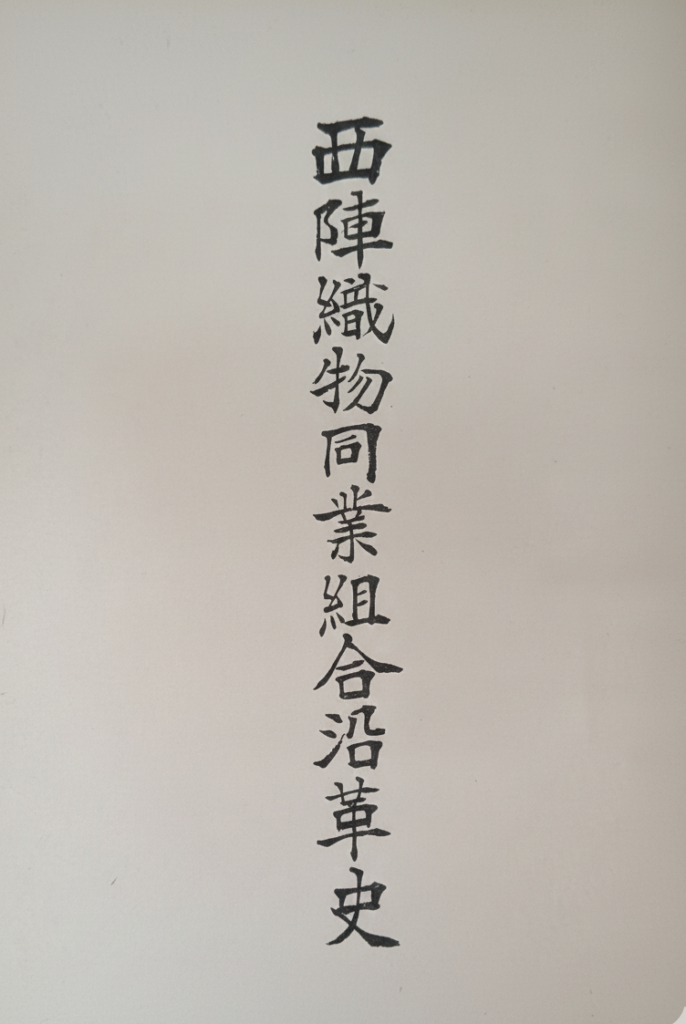 西陣織物同業組合沿革史